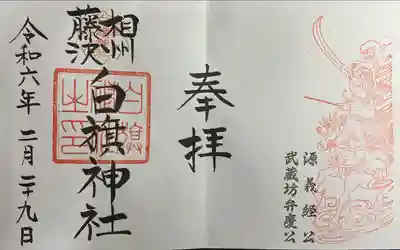 源義経公
武蔵坊弁慶公
奉拝
相州
藤沢
白旗神社
令和六年 二月二十九日